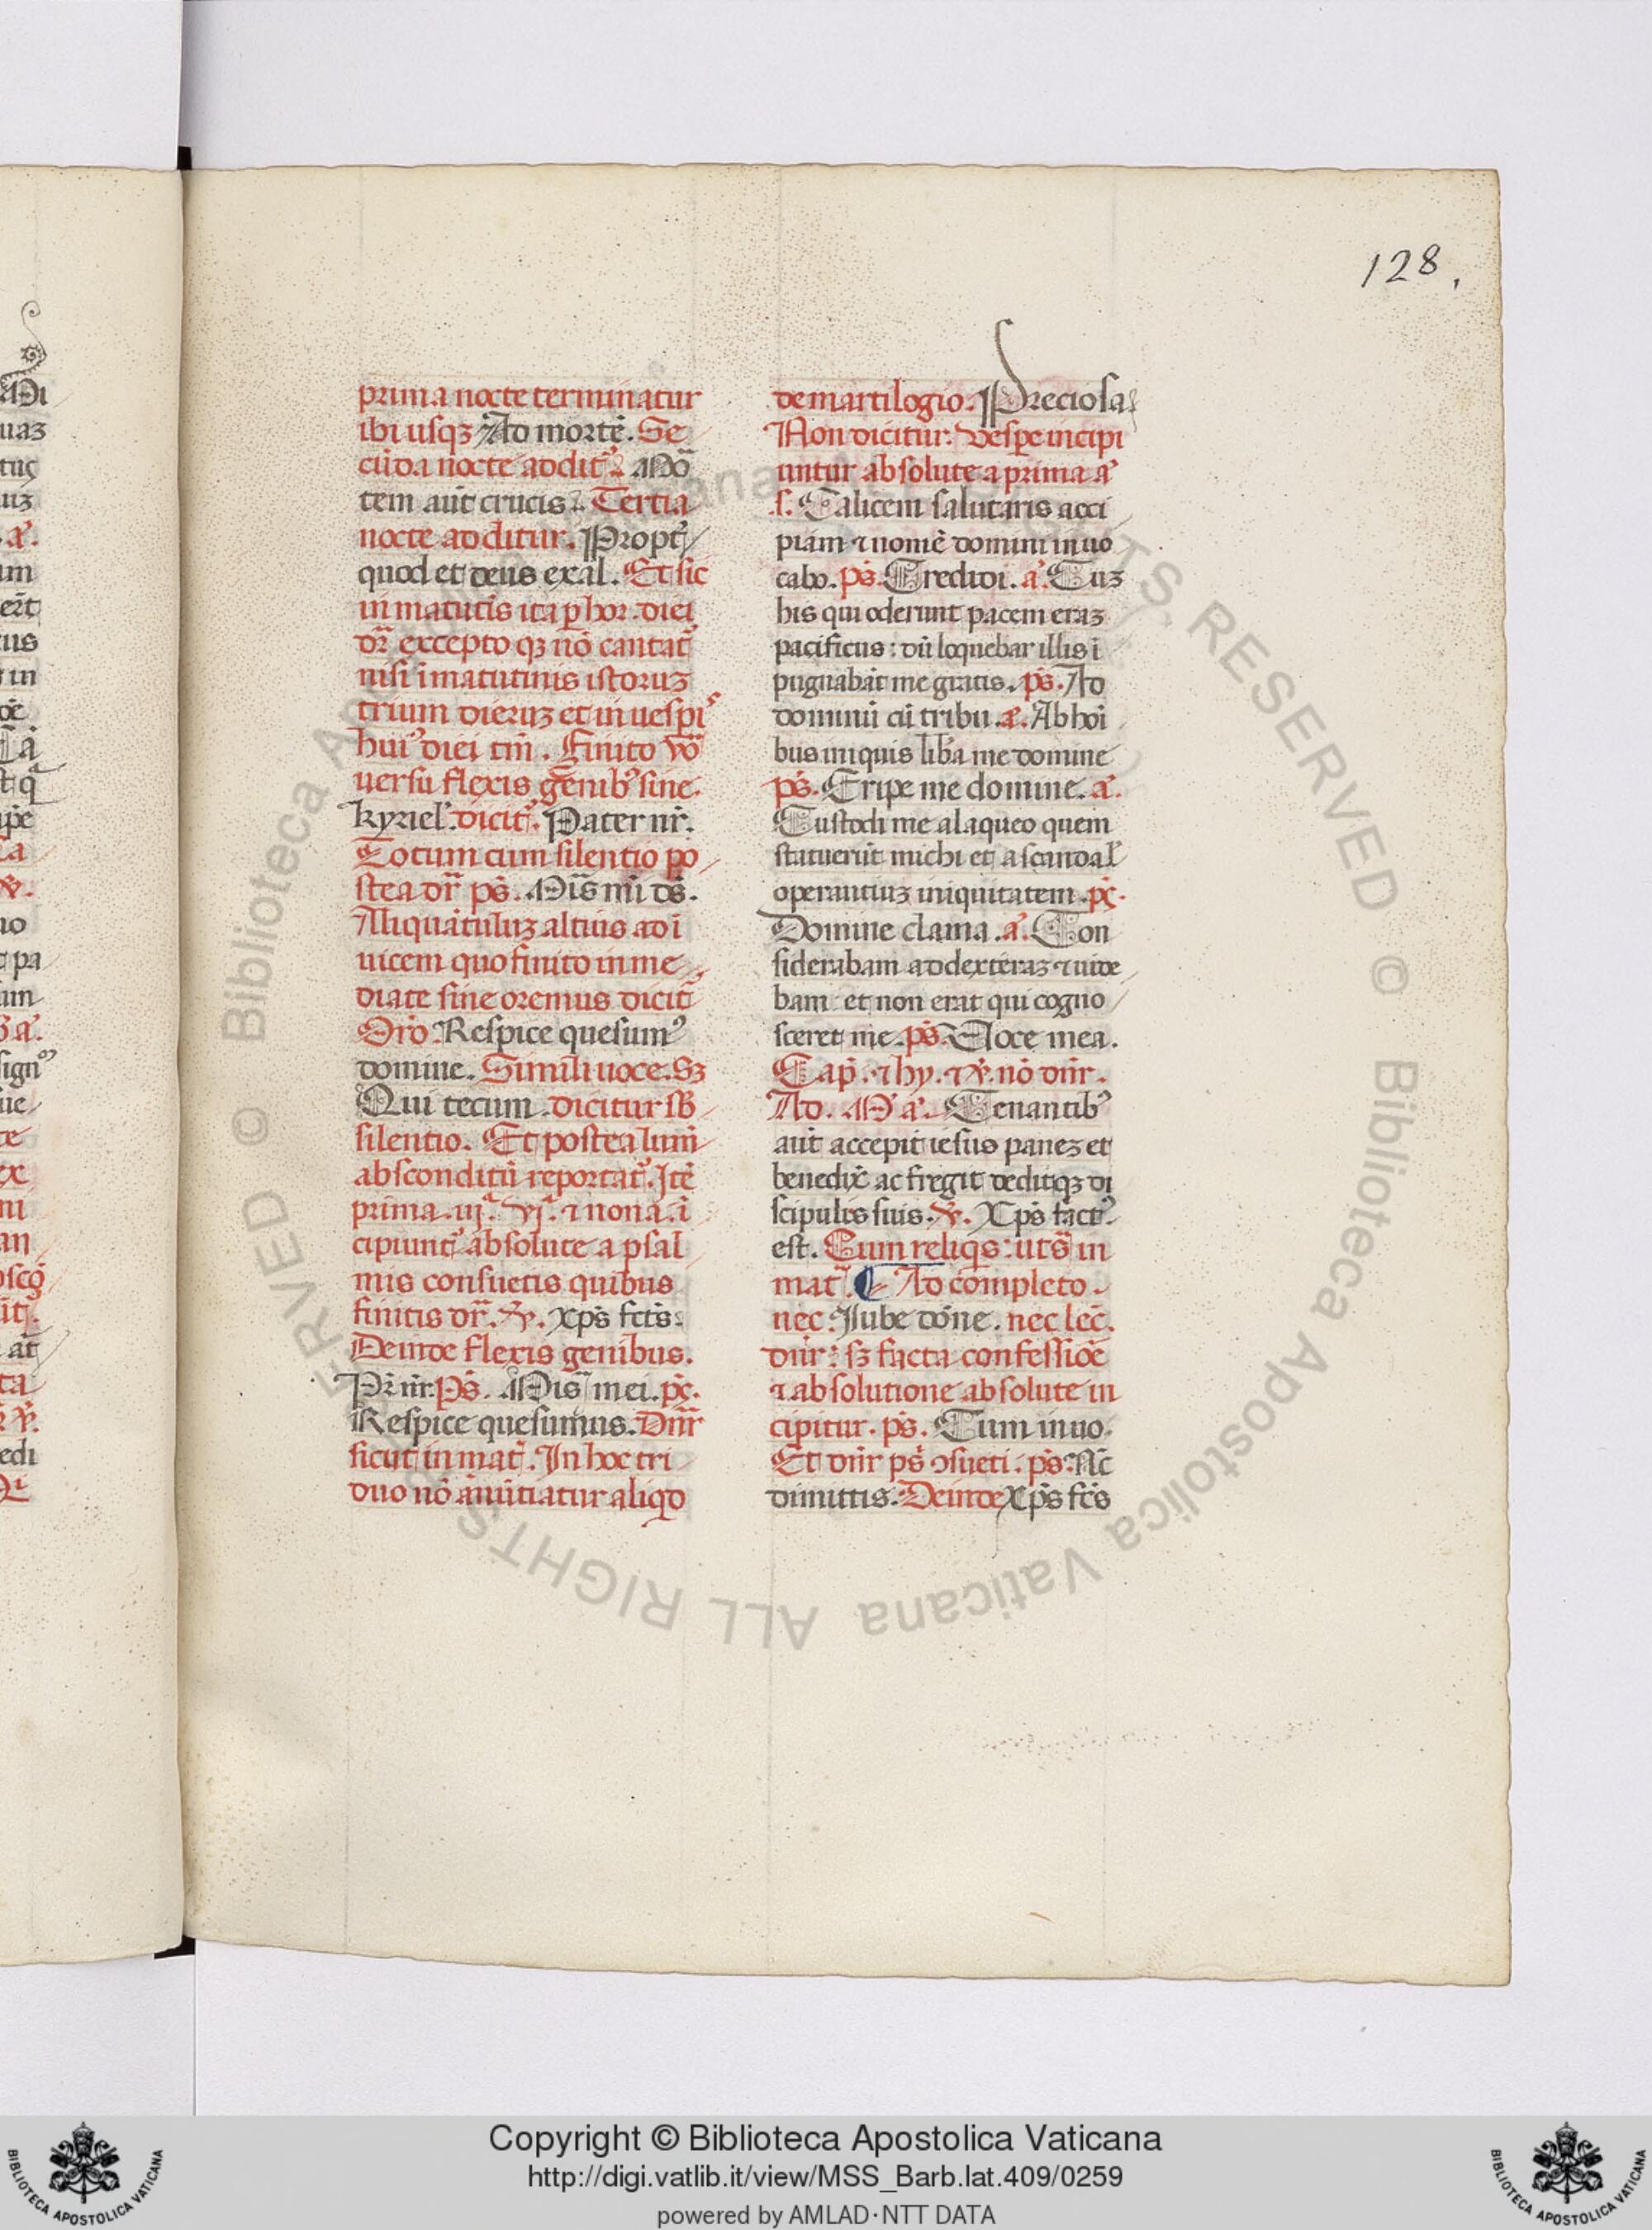 128.
prima nocte terminatur
ibi usqꝫ Ad mortē. Se
cūda nocte addit᷑. Mō
tem aūt crucis. Tertia
nocte additur. Propt᷑
quod et deus exal. Et sic
in matutīs ita ꝑ hor. diei
dr̄ excepto qꝫ nō cantat᷑
nisi ī matutinis istoruꝫ
trium dieruꝫ et in uesꝑi
huiꝰ diei tm̄. Finito v̄o
uersu flexis genibꝰ sine
kyriel᷑. dicit᷑. Pater nr̄.
Totum cum silentio po
stea dr̄ ps̄. Mis̄ mī ds̄.
Aliquātuluꝫ altius ad ī
uicem quo finito in me
diate sine oremus dicit᷑
Orō. Respice quesumꝰ
domine. Simili uoce. Sꝫ
Qui tecum. dicitur sb̄
silentio. Et postea lum̄
absconditū reportat᷑. Itē
prima. iij.ª vj.ª ⁊ nona. ī
cipiunt᷑ absolute a psal
mis consuetis quibus
finitis dr̄. ℣. Xp̄s fcs̄.
Deinde flexis genibus.
Pr̄ nr̄. Ps̄. Mis̄ mei. ps̄.
Respice quesumus. Dnr̄
sicut in mat᷑. In hoc tri
duo nō ānūtiatur aliqd
de martilogio. Preciosa
Non dicitur. Vesꝑe incipi
untur absolute a prima a᷑
.s. Calicem salutaris acci
piam ⁊ nomē domini inuo
cabo. ps̄. Credidi. a᷑. Cuꝫ
his qui oderunt pacem eraꝫ
pacificus: dū loquebar illis ī
pugnabāt me gratis. ps̄. Ad
dominū cū tribu. a᷑. Ab hoī
bus iniquis lib̄a me domine
ps̄. Eripe me domine. a᷑.
Custodi me a laqueo quem
statuerūt michi et a scandal᷑
operantiuꝫ iniquitatem. ps̄.
Domine clama. a᷑. Con
siderabam ad dexteraꝫ ⁊ uide
bam et non erat qui cogno
sceret me. ps̄. Voce mea.
Cap̄. ⁊ hy. ⁊ ℣. nō dnr̄.
Ad. M̄ a᷑. Cenantibꝰ
aūt accepit iesus paneꝫ et
benedix̄ ac fregit deditqꝫ di
scipulis suis. ℣. Xp̄s fact᷑
est. Cum reliqs: ut s̄ in
mat᷑. ¶ Ad completo
nec. Iube dōne. nec lec̄.
dnr̄: sꝫ facta confessiōe
⁊ absolutione absolute in
cipitur. ps̄. Cum inuo.
Et dnr̄ ps̄ ꝯsueti. ps̄. Nc̄
dimittis. Deinde Xp̄s fcs̄
© Biblioteca Apostolica Vaticana ALL RIGHTS RESERVED
Copyright © Biblioteca Apostolica Vaticana
http://digi.vatlib.it/view/MSS_Barb.lat.409/0259
powered by AMLAD·NTT DATA
BIBLIOTECA APOSTOLICA VATICANA
BIBLIOTECA APOSTOLICA VATICANA